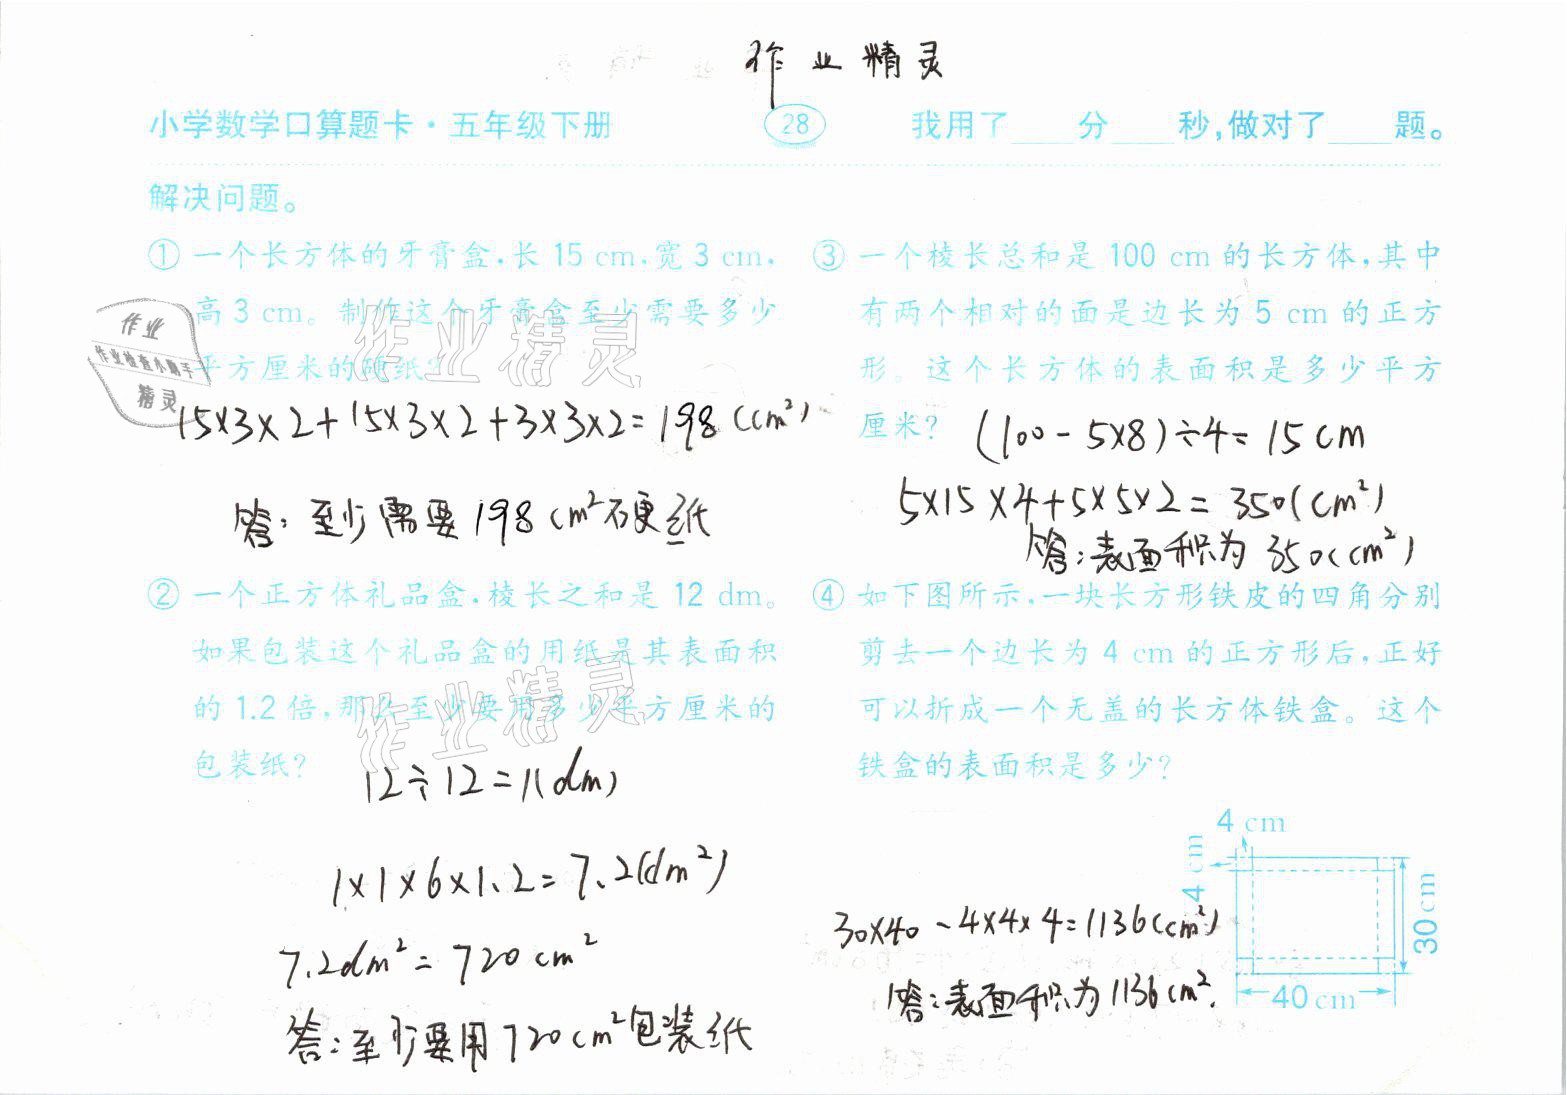 作业精灵
小学数学口算题卡·五年级下册 28 我用了____分____秒,做对了____题。
解决问题。
① 一个长方体的牙膏盒,长15 cm,宽3 cm,
高3 cm。制作这个牙膏盒至少需要多少
平方厘米的硬纸?
15×3×2+15×3×2+3×3×2=198(cm²)
答:至少需要198cm²硬纸
② 一个正方体礼品盒,棱长之和是12 dm。
如果包装这个礼品盒的用纸是其表面积
的1.2倍,那么至少要用多少平方厘米的
包装纸?
12÷12=1(dm)
1×1×6×1.2=7.2(dm²)
7.2dm²=720cm²
答:至少要用720cm²包装纸
③ 一个棱长总和是100 cm的长方体,其中
有两个相对的面是边长为5 cm的正方
形。这个长方体的表面积是多少平方
厘米?
(100-5×8)÷4=15cm
5×15×4+5×5×2=350(cm²)
答:表面积为350(cm²)
④ 如下图所示,一块长方形铁皮的四角分别
剪去一个边长为4 cm的正方形后,正好
可以折成一个无盖的长方体铁盒。这个
铁盒的表面积是多少?
4 cm
4 cm
30 cm
40 cm
30×40-4×4×4=1136(cm²)
答:表面积为1136cm².
作业
作业检查小助手
精灵
作业精灵
作业精灵